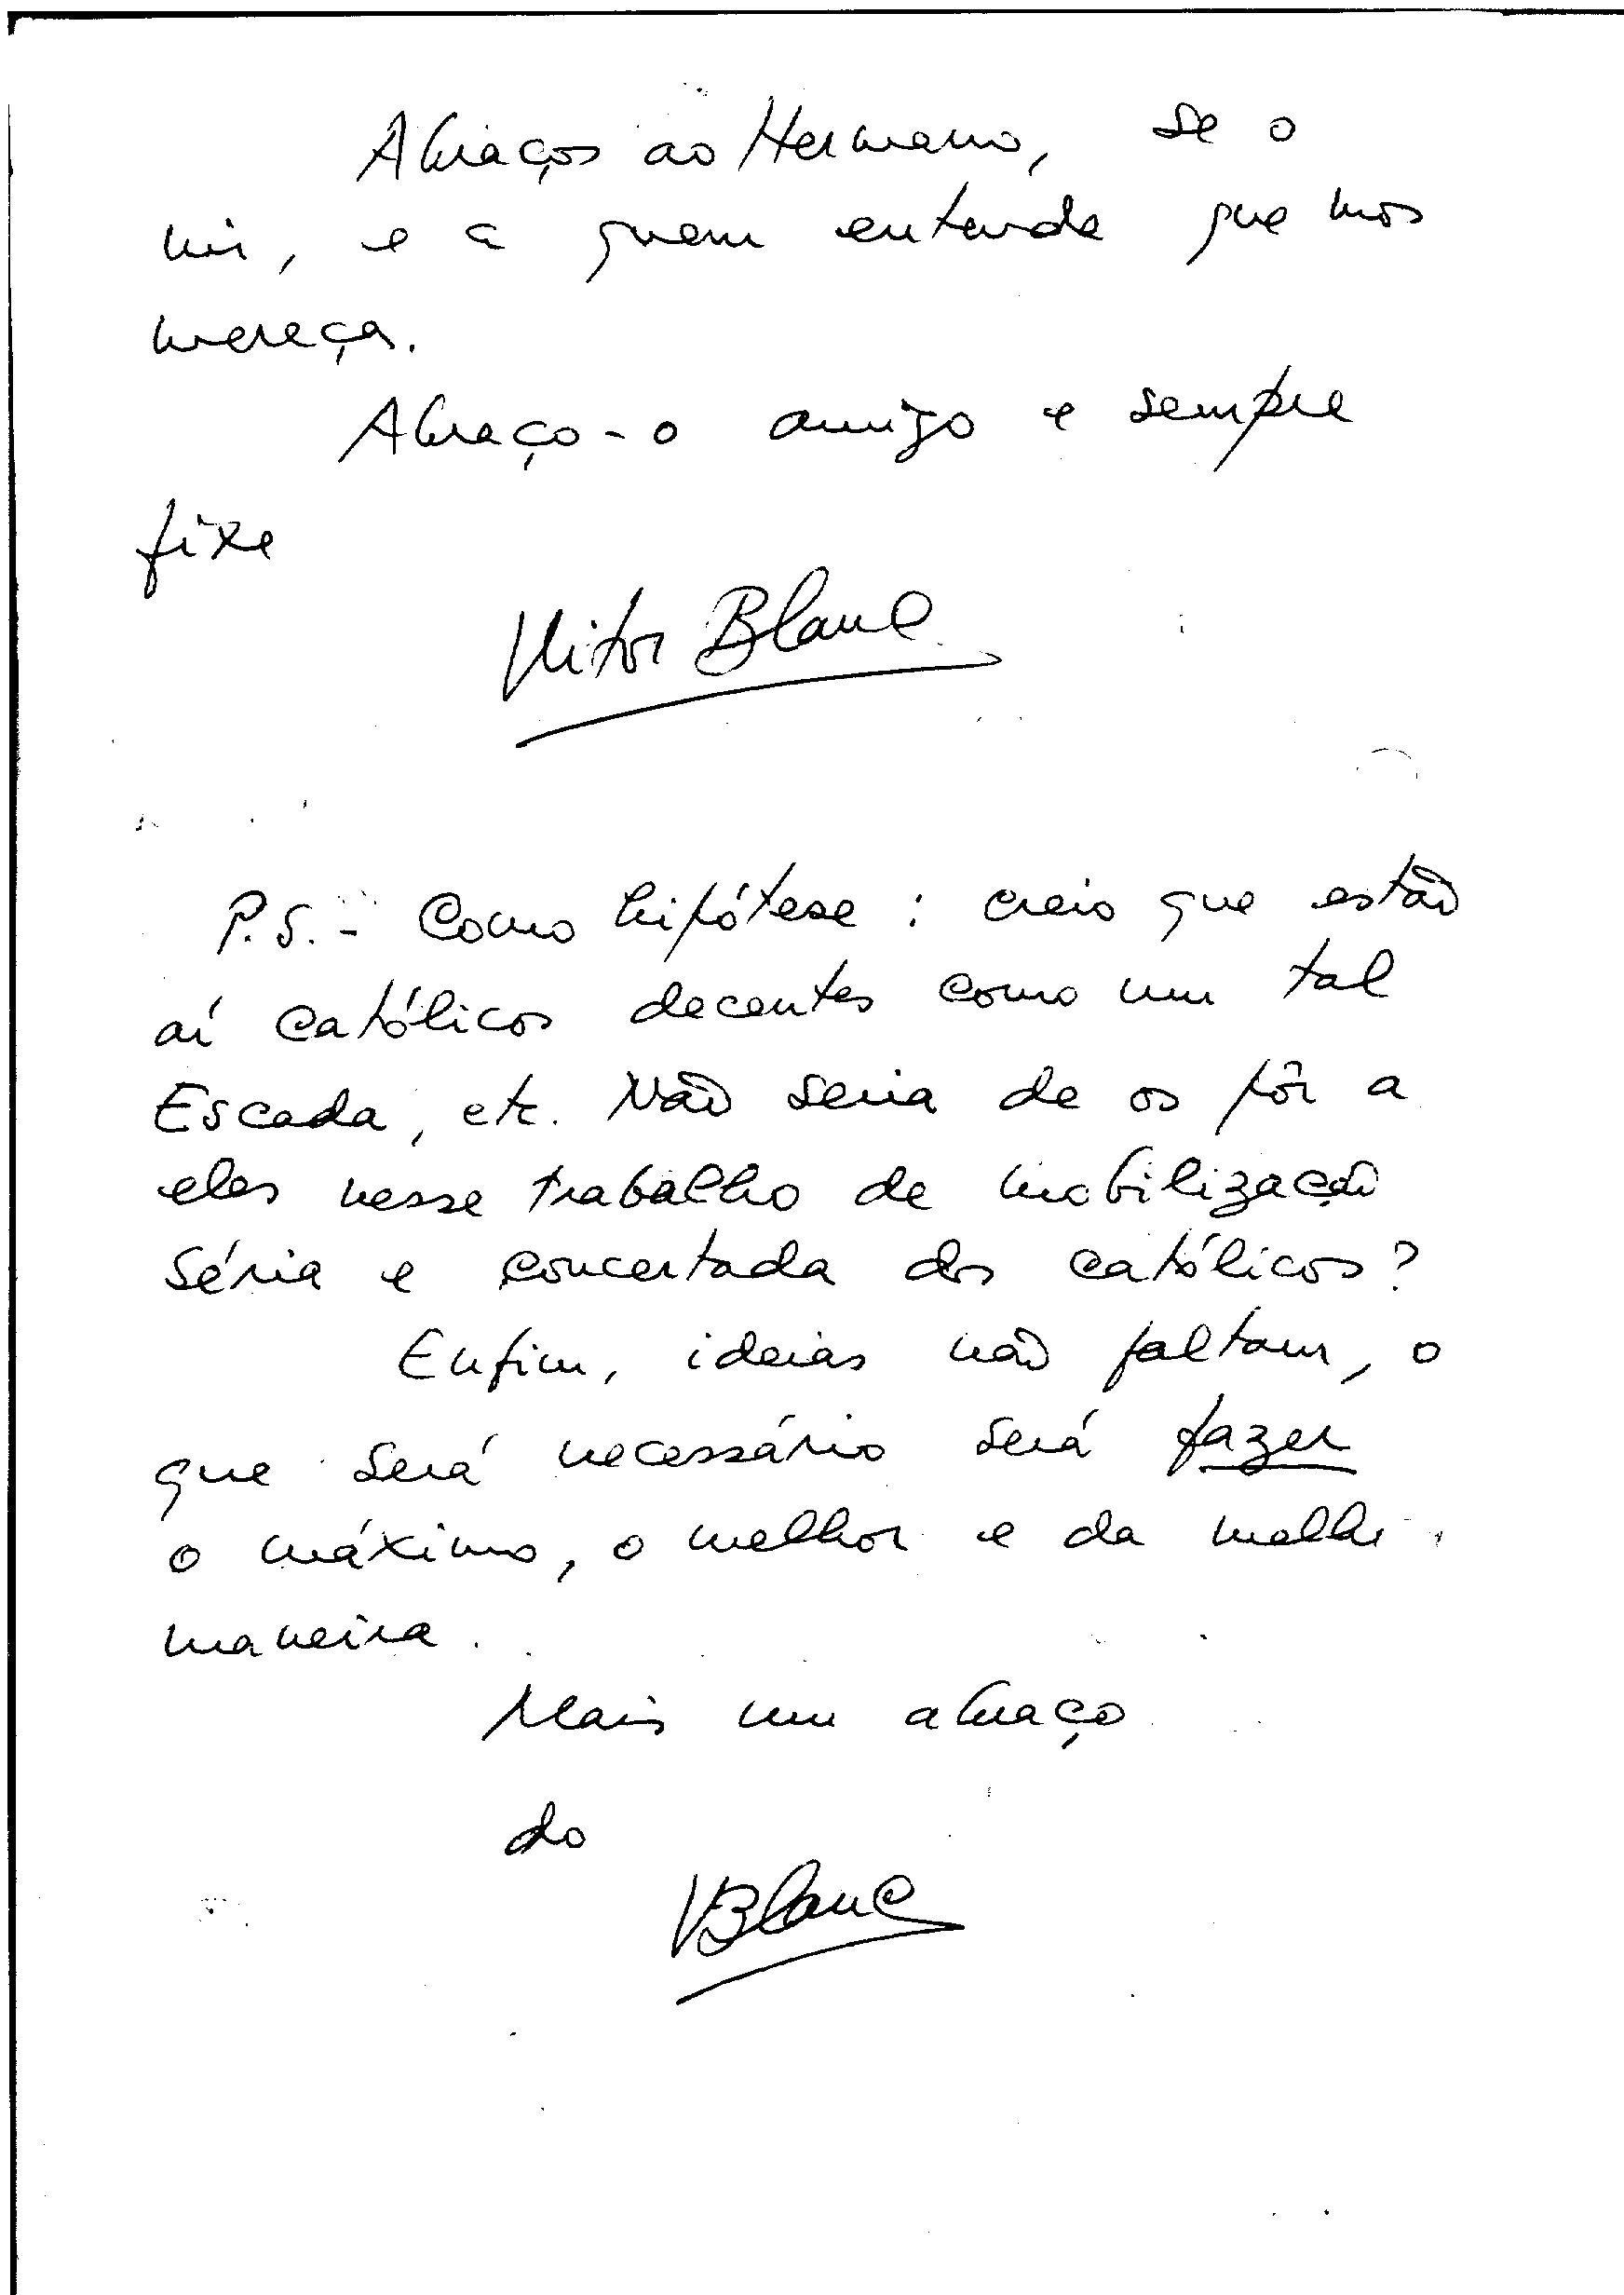 Abraços ao Hermano, se o
vir, e a quem entenda que mos
mereça.
Abraço-o amigo e sempre
fixe
Vitor Blanc
P.S. - Como hipótese: creio que estão
aí católicos decentes como um tal
Escada, etc. Não seria de os pôr a
eles nesse trabalho de mobilização
séria e concertada dos católicos?
Enfim, ideias não faltam, o
que será necessário será fazer
o máximo, o melhor e da
maneira.
Mais um abraço
do
VBlanc